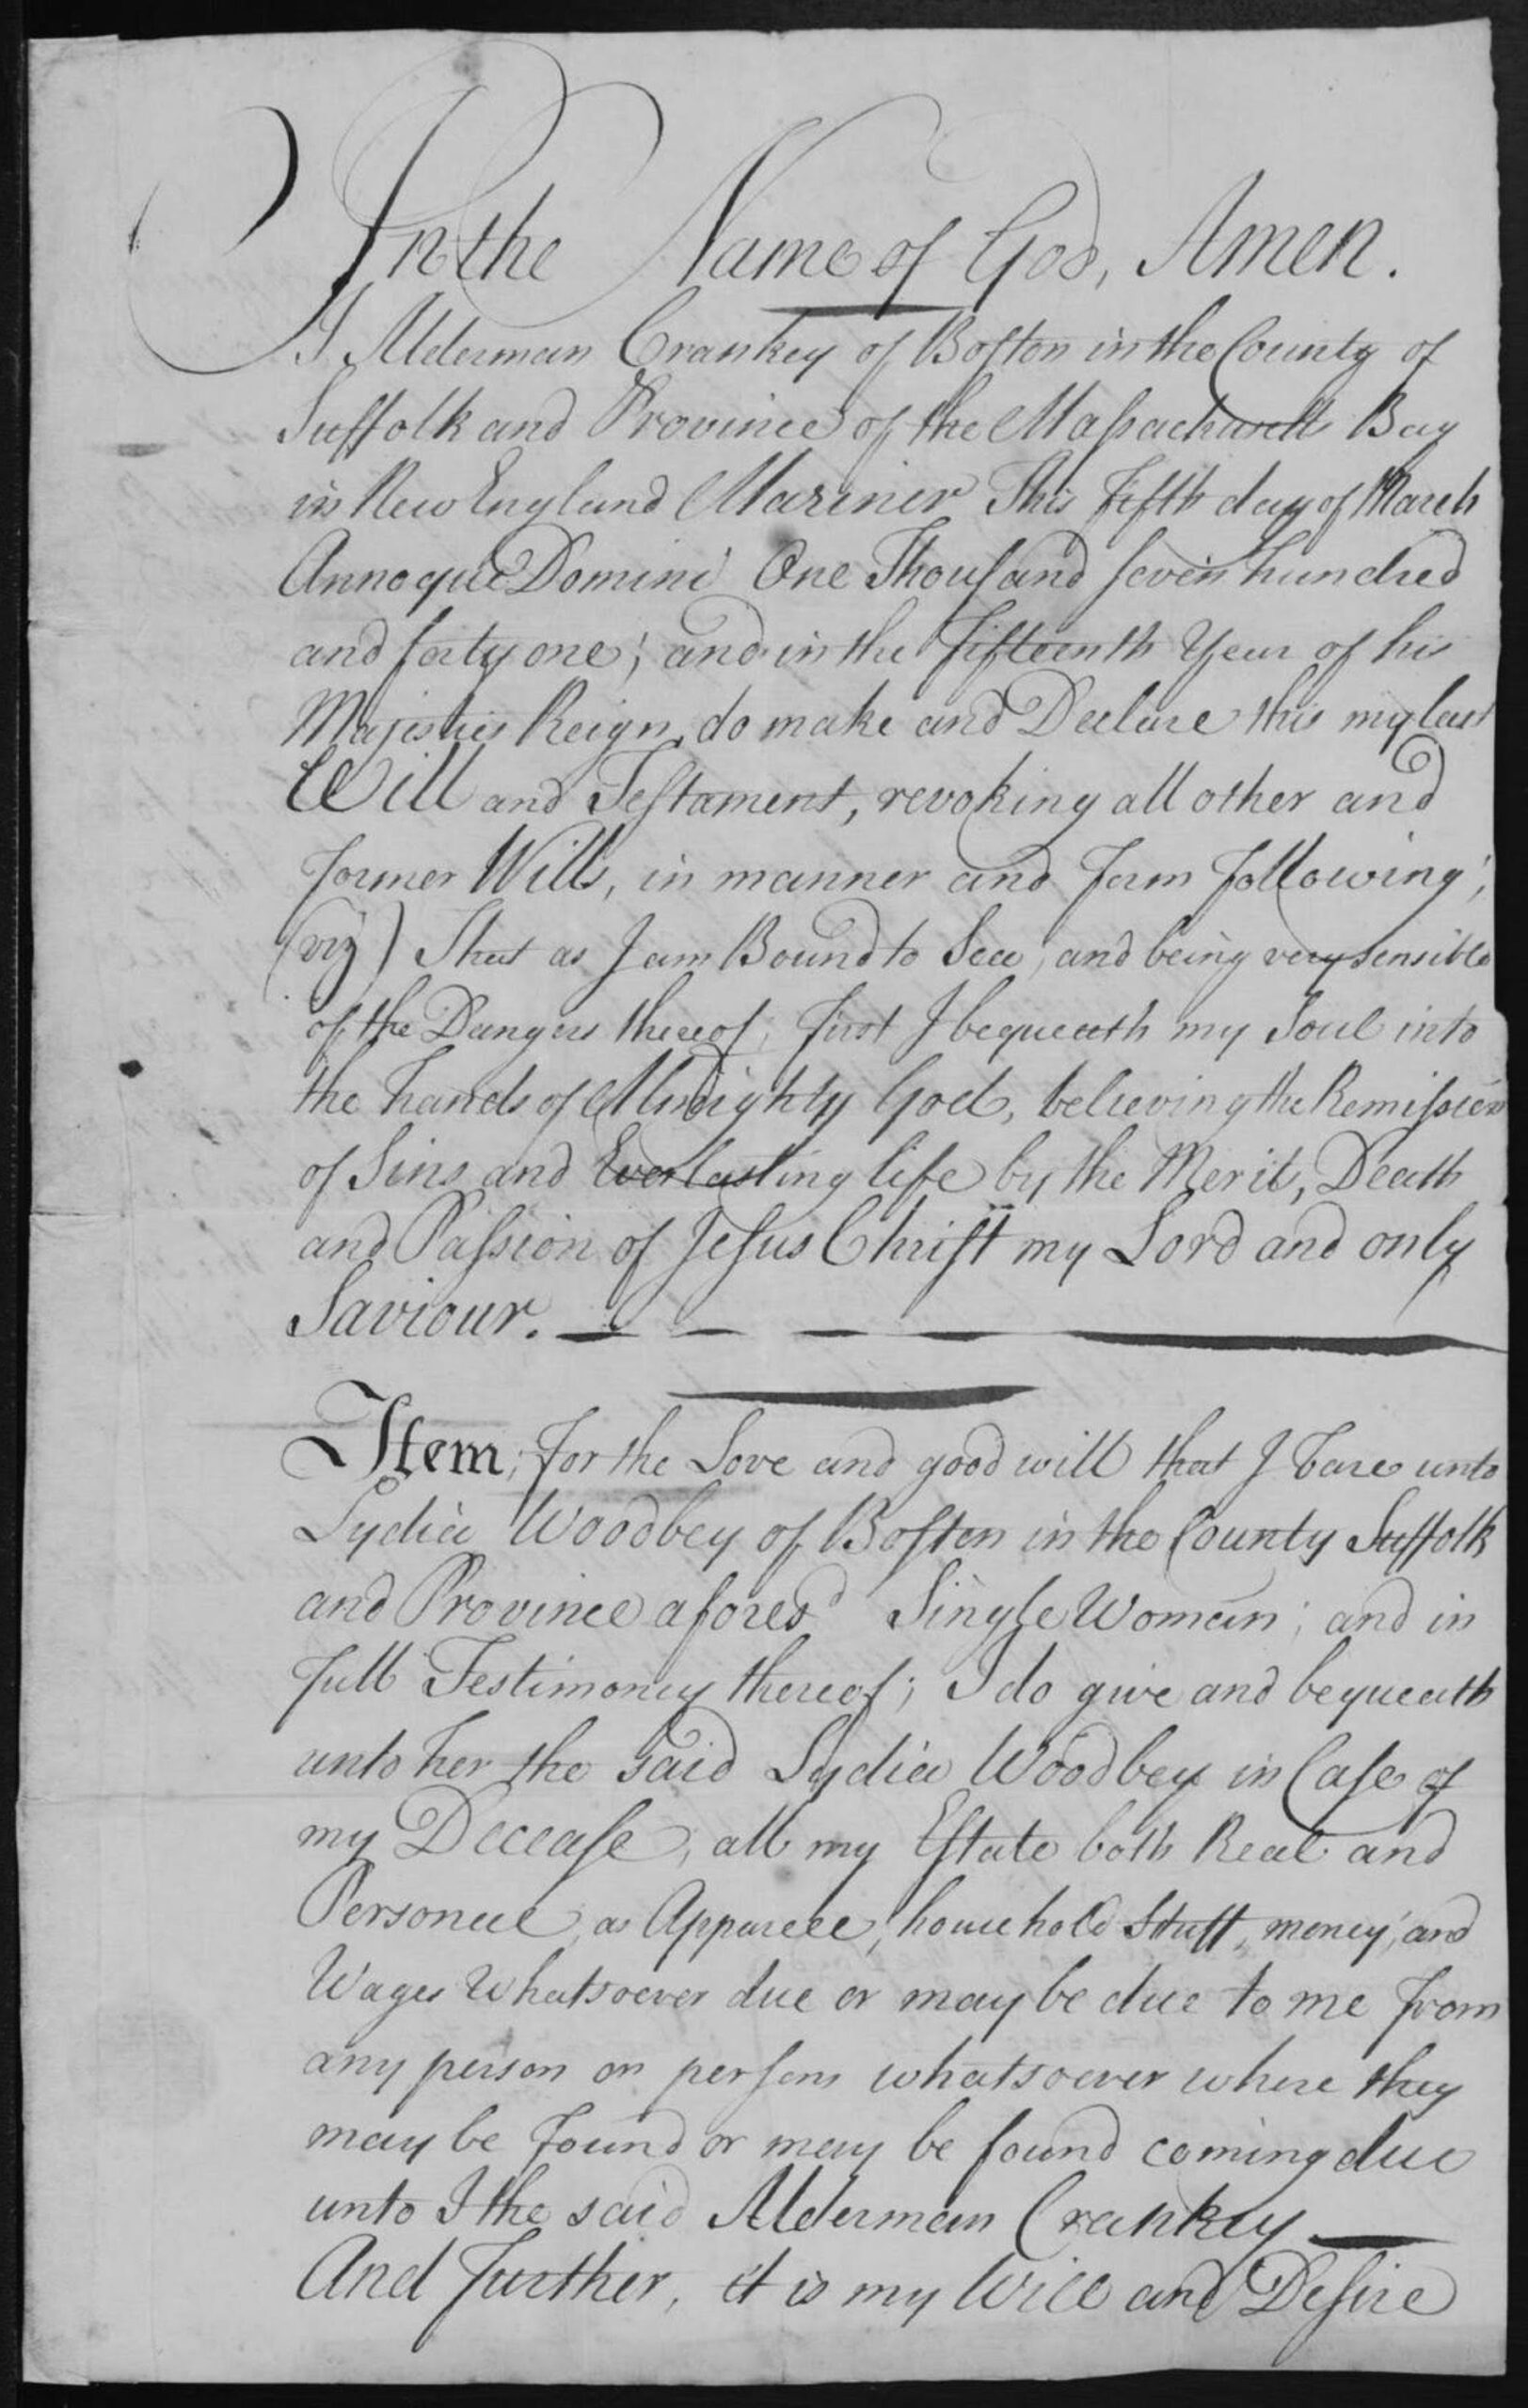 In the Name of God, Amen.
I Alderman Crankey of Boston in the County of
Suffolk and Province of the Massachusetts Bay
in New England Mariner This fifth day of March
Annoque Domini One Thousand seven hundred
and forty one; and in the fifteenth Year of his
Majesties Reign, do make and Declare this my last
Will and Testament, revoking all other and
former Wills, in manner and form following;
(viz) That as I am Bound to Sea, and being very sensible
of the Dangers thereof, first I bequeath my Soul into
the hands of Almighty God, believing the Remission
of Sins and Everlasting life by the Merits, Death
and Passion of Jesus Christ my Lord and only
Saviour.
Item, for the Love and good will that I bare unto
Lydia Woodbey of Boston in the County Suffolk
and Province afores^d Single Woman; and in
full Testimoney thereof; I do give and bequeath
unto her the said Lydia Woodbey in Case of
my Decease, all my Estate both Real and
Personal, as Apparell, household Stuff, money, and
Wages Whatsoever due or may be due to me from
any person or persons whatsoever where they
may be found or may be found coming due
unto I the said Alderman Crankey
And further, it is my Will and Desire